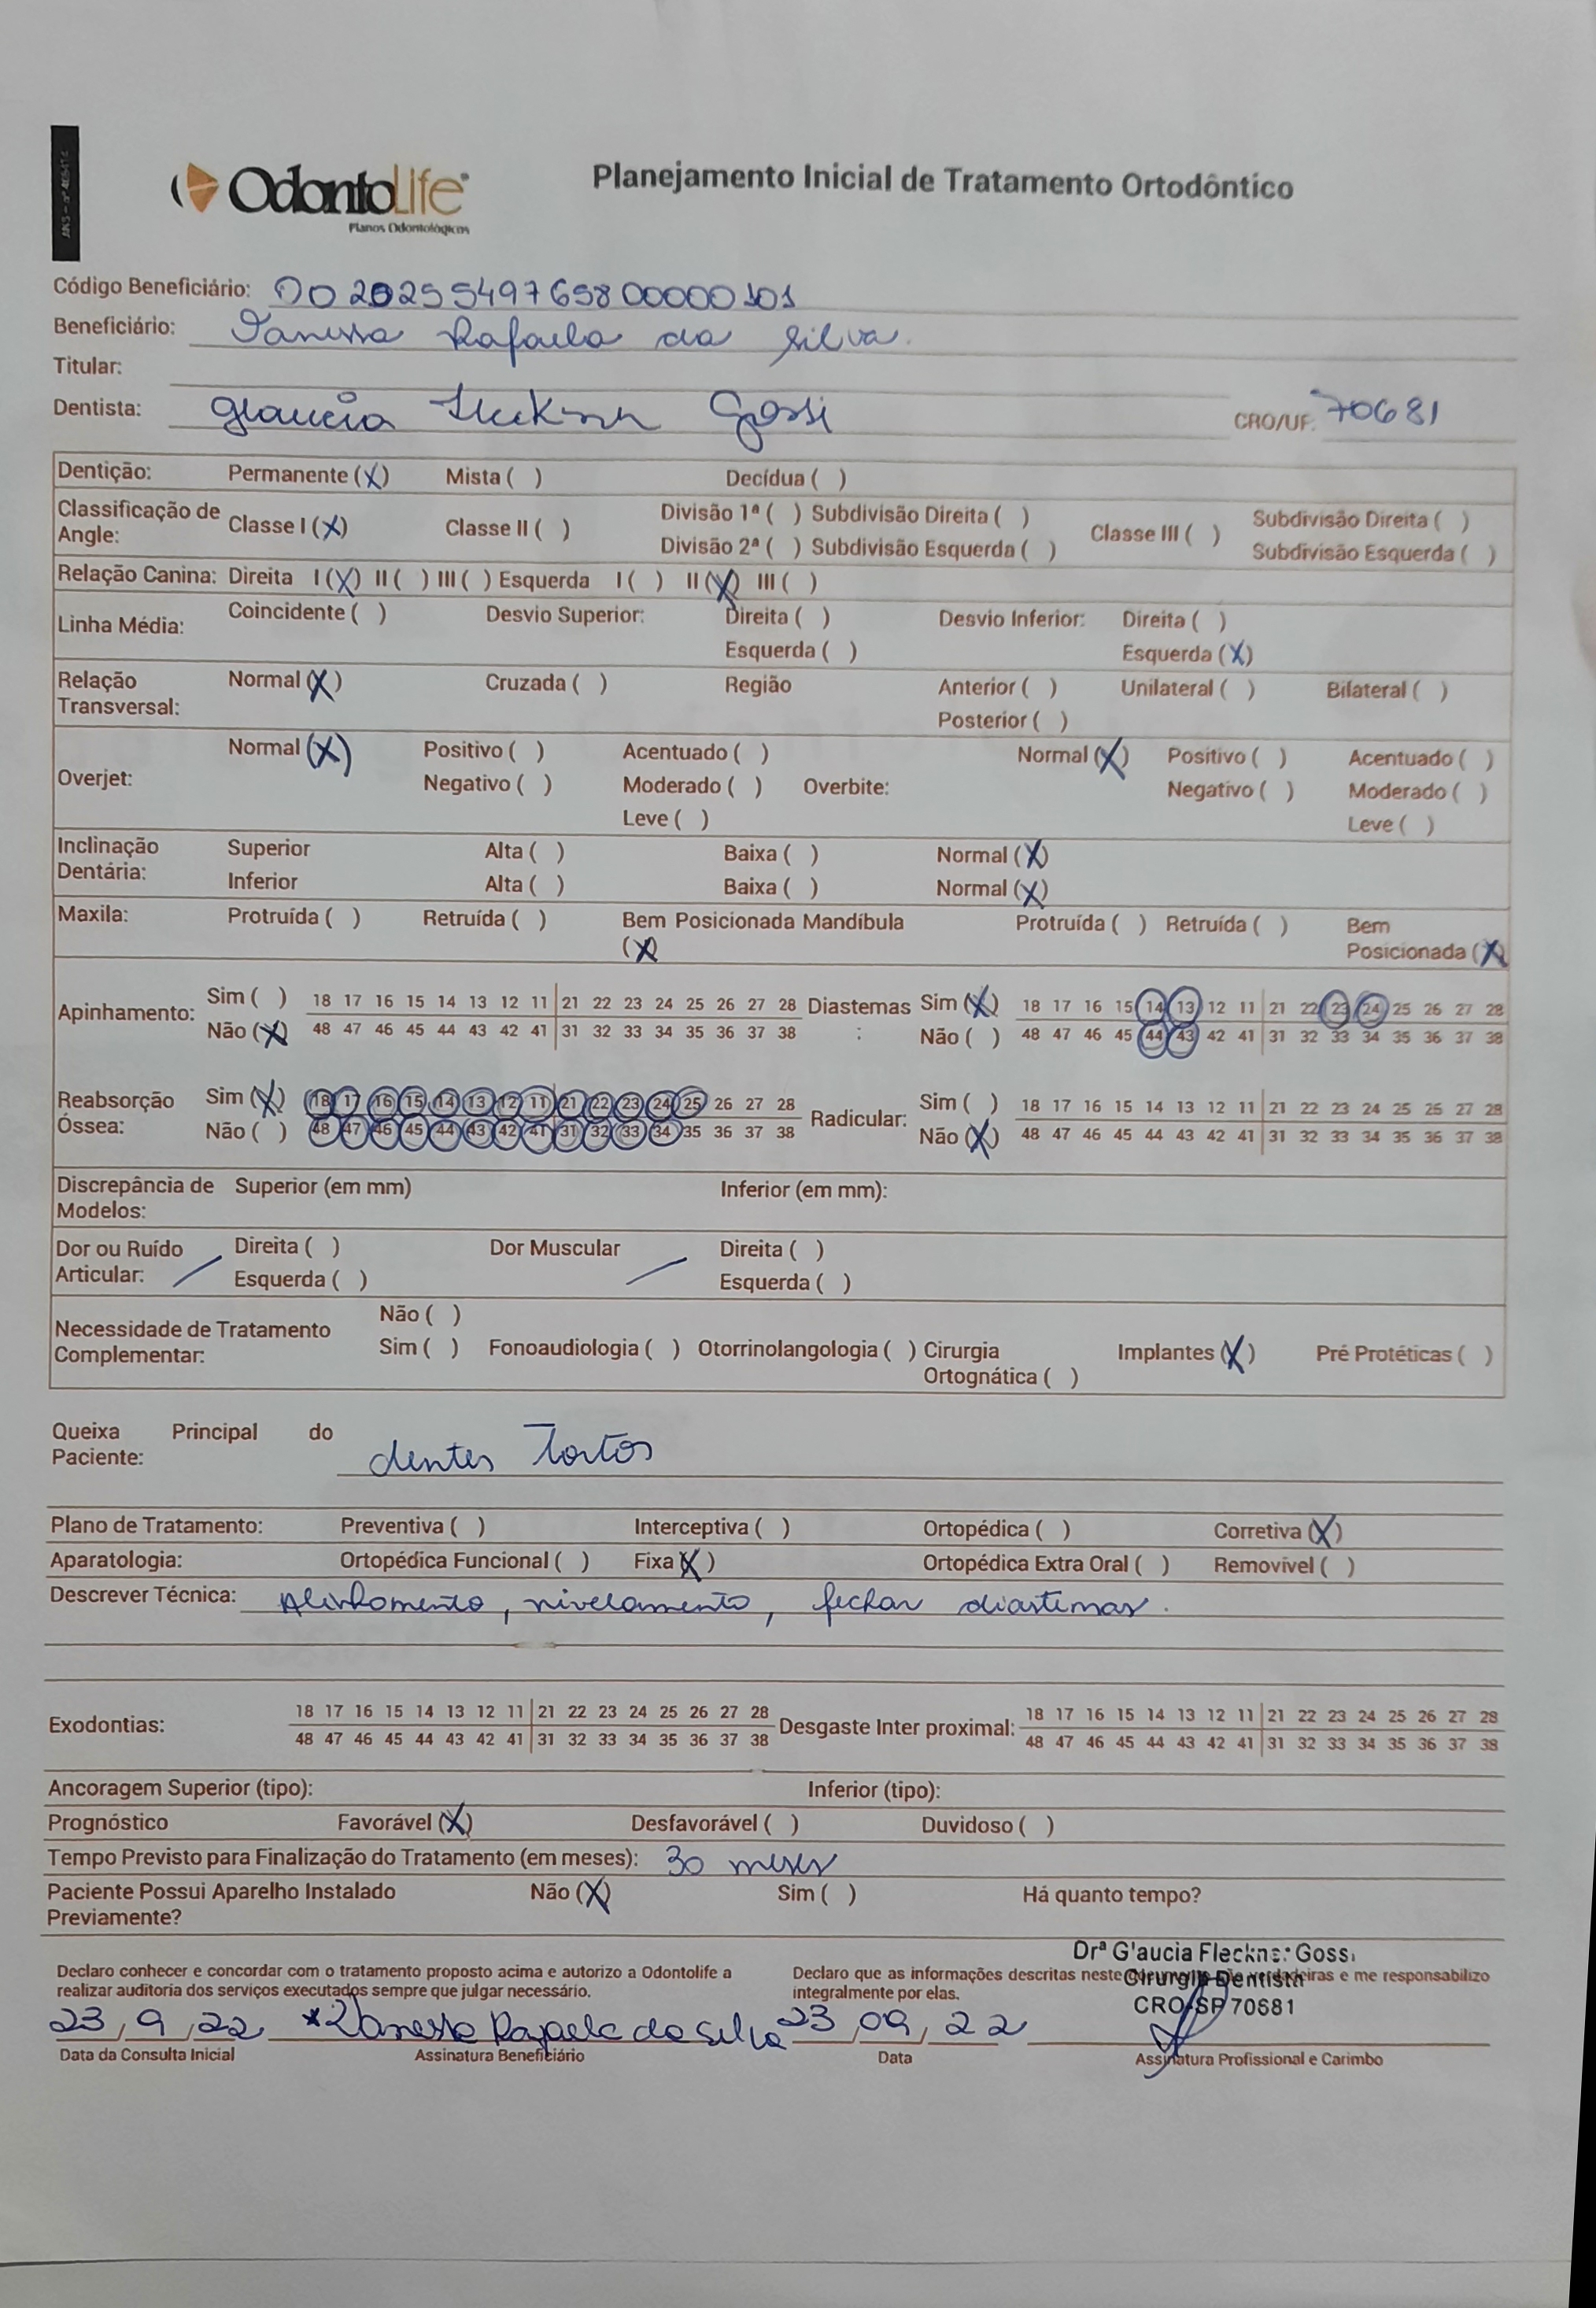 OdontoLife
Planos Odontológicos
Planejamento Inicial de Tratamento Ortodôntico
Código Beneficiário: 00202554976580000101
Beneficiário: Vanessa Rafaela da Silva.
Titular:
Dentista: Glaucia Gossi CRO/UF: 70681
Dentição: Permanente (X) Mista ( ) Decídua ( )
Classificação de Angle: Classe I (X) Classe II ( ) Divisão 1ª ( ) Subdivisão Direita ( ) Classe III ( ) Subdivisão Direita ( )
Divisão 2ª ( ) Subdivisão Esquerda ( ) Subdivisão Esquerda ( )
Relação Canina: Direita I (X) II ( ) III ( ) Esquerda I ( ) II (X) III ( )
Linha Média: Coincidente ( ) Desvio Superior: Direita ( ) Desvio Inferior: Direita ( )
Esquerda ( ) Esquerda (X)
Relação Transversal: Normal (X) Cruzada ( ) Região Anterior ( ) Unilateral ( ) Bilateral ( )
Posterior ( )
Overjet: Normal (X) Positivo ( ) Acentuado ( ) Overbite: Normal (X) Positivo ( ) Acentuado ( )
Negativo ( ) Moderado ( ) Negativo ( ) Moderado ( )
Leve ( ) Leve ( )
Inclinação Dentária: Superior Alta ( ) Baixa ( ) Normal (X)
Inferior Alta ( ) Baixa ( ) Normal (X)
Maxila: Protruída ( ) Retruída ( ) Bem Posicionada (X) Mandíbula Protruída ( ) Retruída ( ) Bem Posicionada (X)
Apinhamento: Sim ( ) 18 17 16 15 14 13 12 11 21 22 23 24 25 26 27 28 Diastemas: Sim (X) 18 17 16 15 14 13 12 11 21 22 23 24 25 26 27 28
Não (X) 48 47 46 45 44 43 42 41 31 32 33 34 35 36 37 38 Não ( ) 48 47 46 45 44 43 42 41 31 32 33 34 35 36 37 38
Reabsorção Óssea: Sim (X) 18 17 16 15 14 13 12 11 21 22 23 24 25 26 27 28 Radicular: Sim ( ) 18 17 16 15 14 13 12 11 21 22 23 24 25 26 27 28
Não ( ) 48 47 46 45 44 43 42 41 31 32 33 34 35 36 37 38 Não (X) 48 47 46 45 44 43 42 41 31 32 33 34 35 36 37 38
Discrepância de Modelos: Superior (em mm) Inferior (em mm):
Dor ou Ruído Articular: Direita ( ) Dor Muscular Direita ( )
Esquerda ( ) Esquerda ( )
Necessidade de Tratamento Complementar: Não ( )
Sim ( ) Fonoaudiologia ( ) Otorrinolangologia ( ) Cirurgia Ortognática ( ) Implantes (X) Pré Protéticas ( )
Queixa Principal do Paciente: dentes Tortos
Plano de Tratamento: Preventiva ( ) Interceptiva ( ) Ortopédica ( ) Corretiva (X)
Aparatologia: Ortopédica Funcional ( ) Fixa (X) Ortopédica Extra Oral ( ) Removível ( )
Descrever Técnica: Alinhamento, nivelamento, fechar diastemas.
Exodontias: 18 17 16 15 14 13 12 11 21 22 23 24 25 26 27 28 Desgaste Inter proximal: 18 17 16 15 14 13 12 11 21 22 23 24 25 26 27 28
48 47 46 45 44 43 42 41 31 32 33 34 35 36 37 38 48 47 46 45 44 43 42 41 31 32 33 34 35 36 37 38
Ancoragem Superior (tipo): Inferior (tipo):
Prognóstico Favorável (X) Desfavorável ( ) Duvidoso ( )
Tempo Previsto para Finalização do Tratamento (em meses): 30 meses
Paciente Possui Aparelho Instalado Previamente? Não (X) Sim ( ) Há quanto tempo?
Declaro conhecer e concordar com o tratamento proposto acima e autorizo a Odontolife a
realizar auditoria dos serviços executados sempre que julgar necessário.
Declaro que as informações descritas neste documento são verdadeiras e me responsabilizo
integralmente por elas.
Drª Glaucia Fleckner Gossi
Cirurgiã Dentista
CRO-SP 70681
23/9/22 Vanessa Rafaela da Silva 23/09/22
Data da Consulta Inicial Assinatura Beneficiário Data Assinatura Profissional e Carimbo